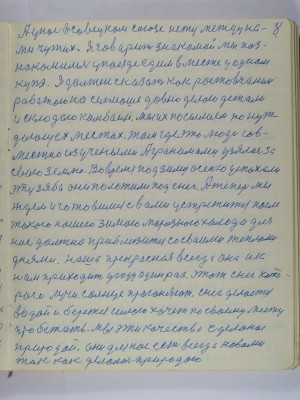 А у нас в советском союзе нету между на- У
ми чужих. Я говорит знакомой мы поз-
накомились у поезде едим в месте у одном
купэ. Я должен сказать как ростовчанин
работаю на сельмаше довно делою детали
и складаю камбаин. мы их посылаем по нуж-
дающех местах. там где это люди сов-
местно из учеными
свою землю. Во время под зиму осенью
эту зябь они под снег. А теперь мы
ждем и готовимся с вами устретить после
такого нашего зимого морозного холода для
нас должна приблизится со своими теплами
днями. наша прекрасная всегда она и к
нам приходит у году один раз. Этот снег кото-
рого лучи солнце прогоняют, снег делается
водой и бережет целого хочет по своему месту
пробегать. Мы эти качества сделаны
природой. Они для нас есть всегда новыми
так как делалось природою